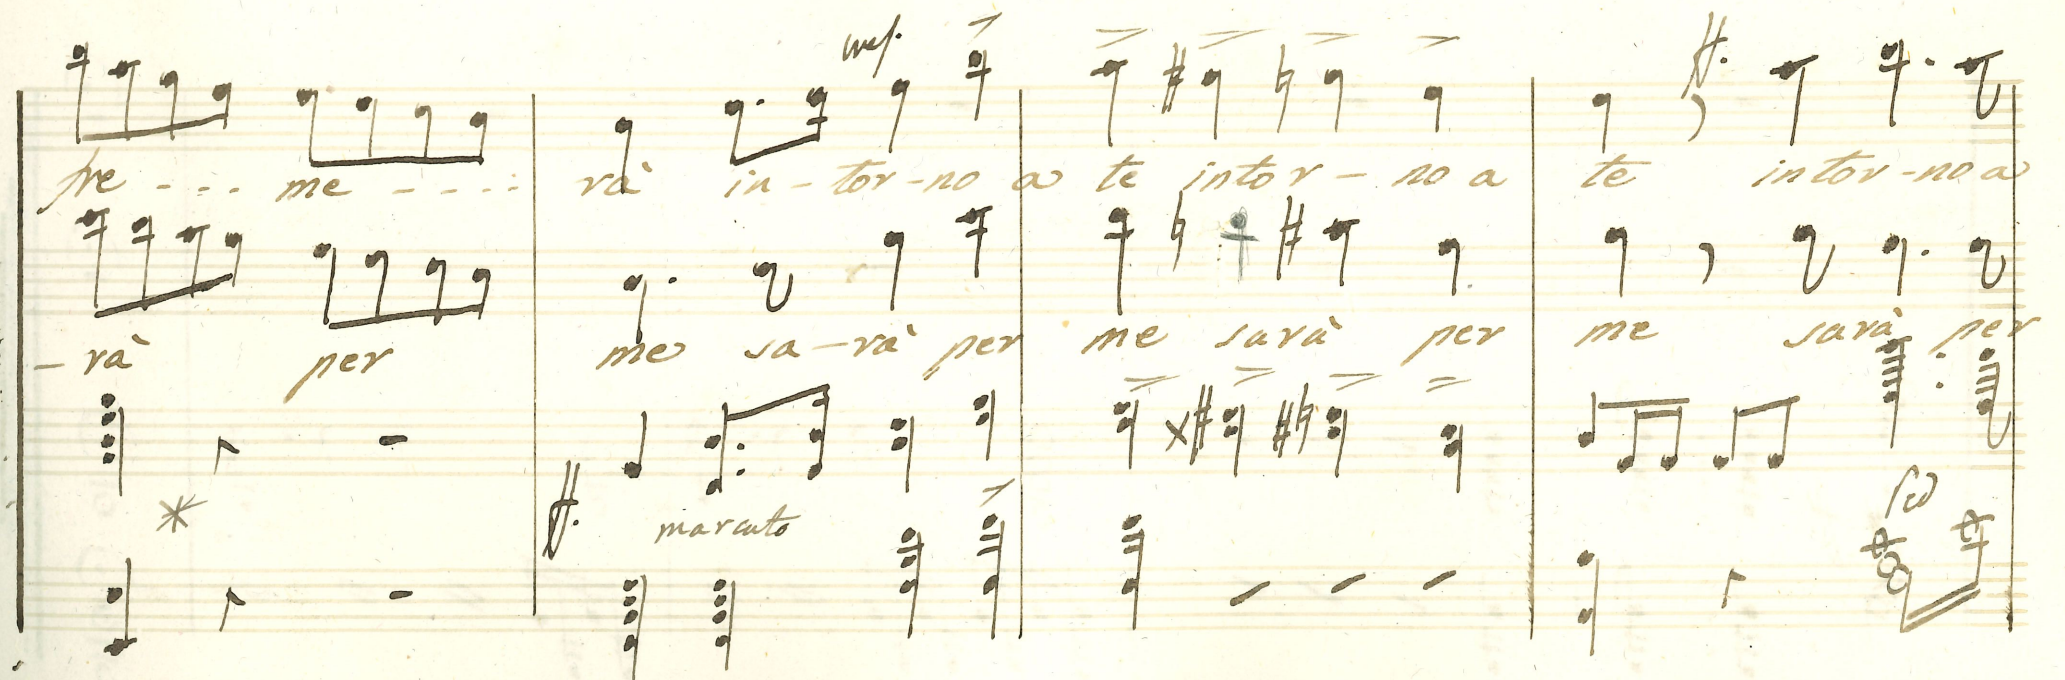 ff.
fre - - - me - - - - rà in - tor - no a te intor - no a te intor - no a
- rà per me sa - rà per me sarà per me sarà per
ff. marcato